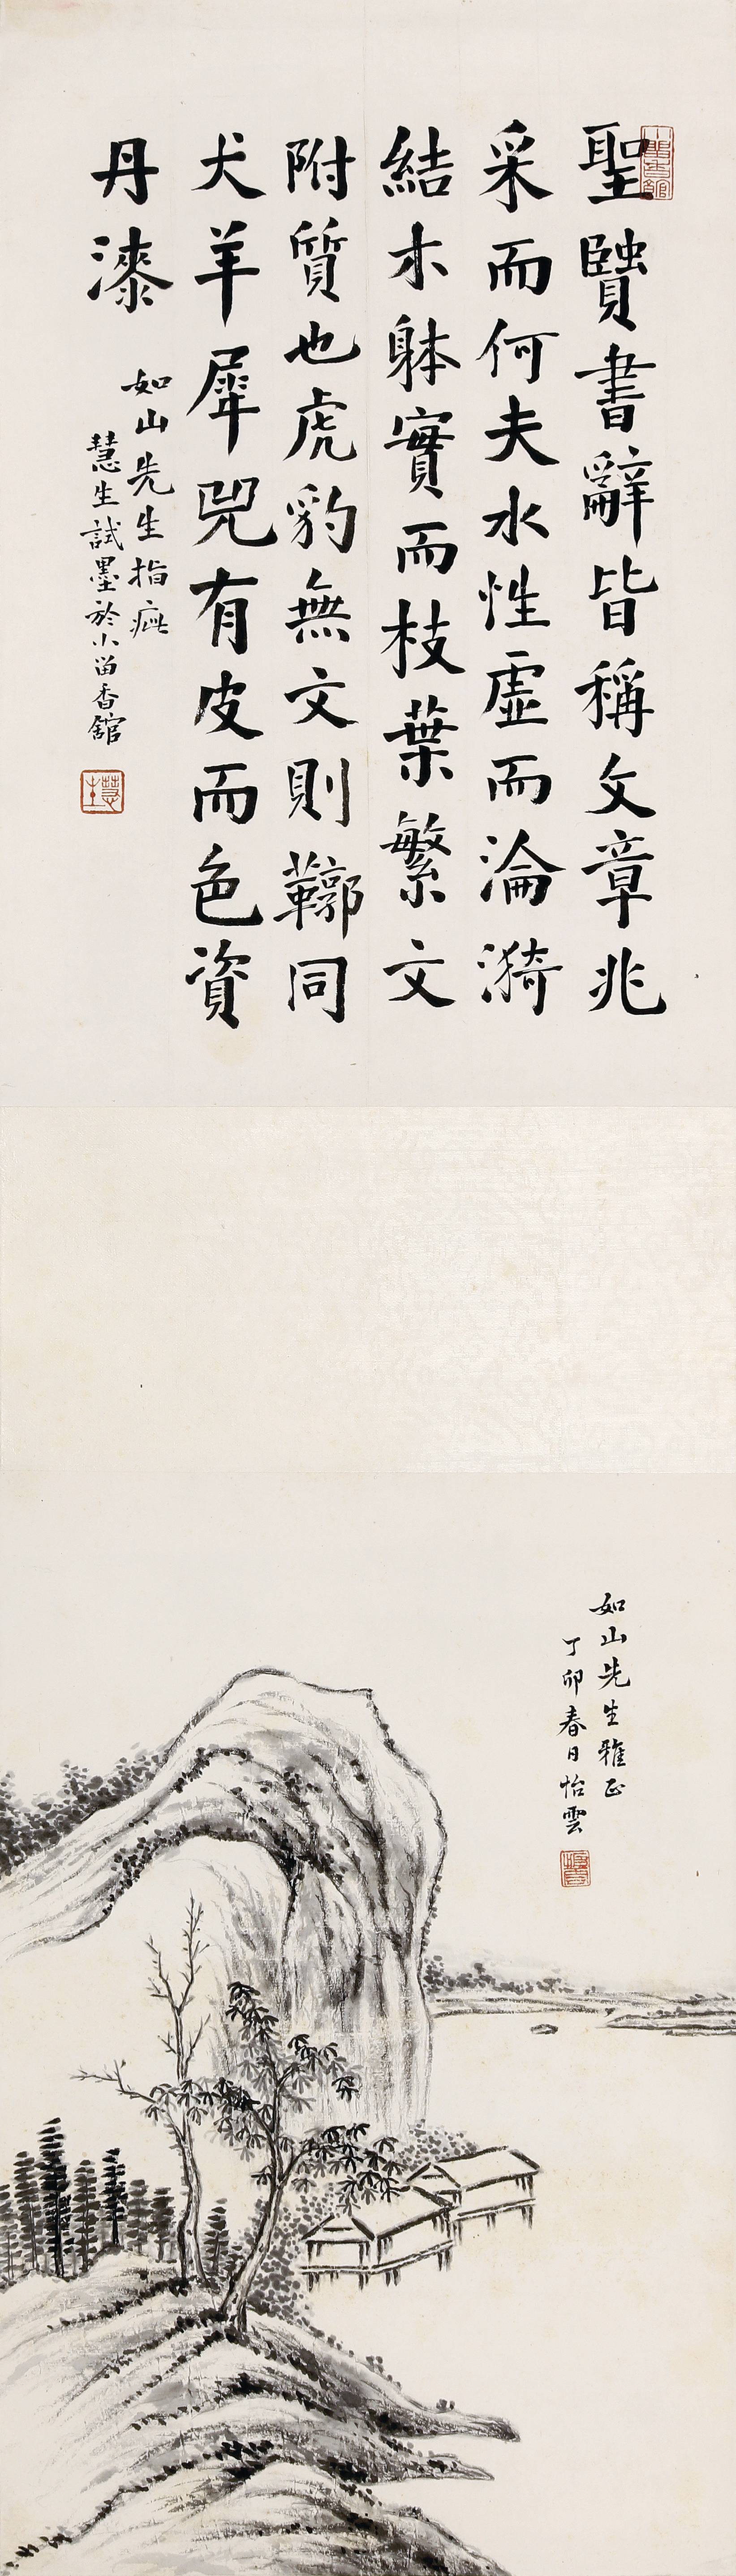 小留香館
聖贒書辭皆稱文章兆
采而何夫水性虛而淪漪
結木躰實而枝葉繁文
附質也虎豹無文則鞹同
犬羊犀兕有皮而色資
丹漆
如山先生指疵
慧生試墨於小留香館
慧生
如山先生雅正
丁卯春日怡雲